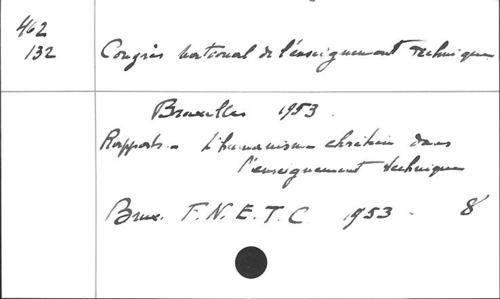 462
132
Congrès national de l'enseignement technique
Bruxelles 1953.
Rapports. L'humanisme chrétien dans
l'enseignement technique
Brux. F.N.E.T.C 1953. 8°